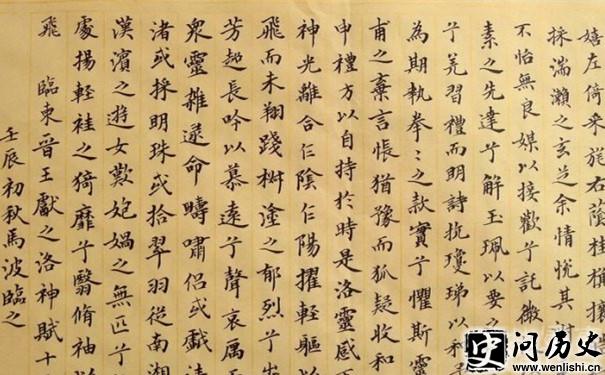 嬉左倚采旄右蔭桂旗攘
採湍瀨之玄芝余情悅其
不怡無良媒以接歡兮託微
素之先達兮解玉珮以要之
兮羌習禮而明詩抗瓊珶以和
為期執拳〻之款實兮懼斯靈
甫之棄言悵猶豫而狐疑收和
申禮方以自持於時是洛靈感
神光離合乍陰乍陽擢輕軀以
飛而未翔踐椒塗之郁烈兮步
芳超長吟以慕遠兮聲哀厲
衆靈雜遝命疇嘯侶或戲清
渚或採明珠或拾翠羽從南湘
漢濱之遊女歎匏媧之無匹兮
處揚輕袿之猗靡兮翳脩袖以
飛 臨東晉王獻之洛神賦十
壬辰初秋馬波臨之
问历史
www.wenlishi.cn